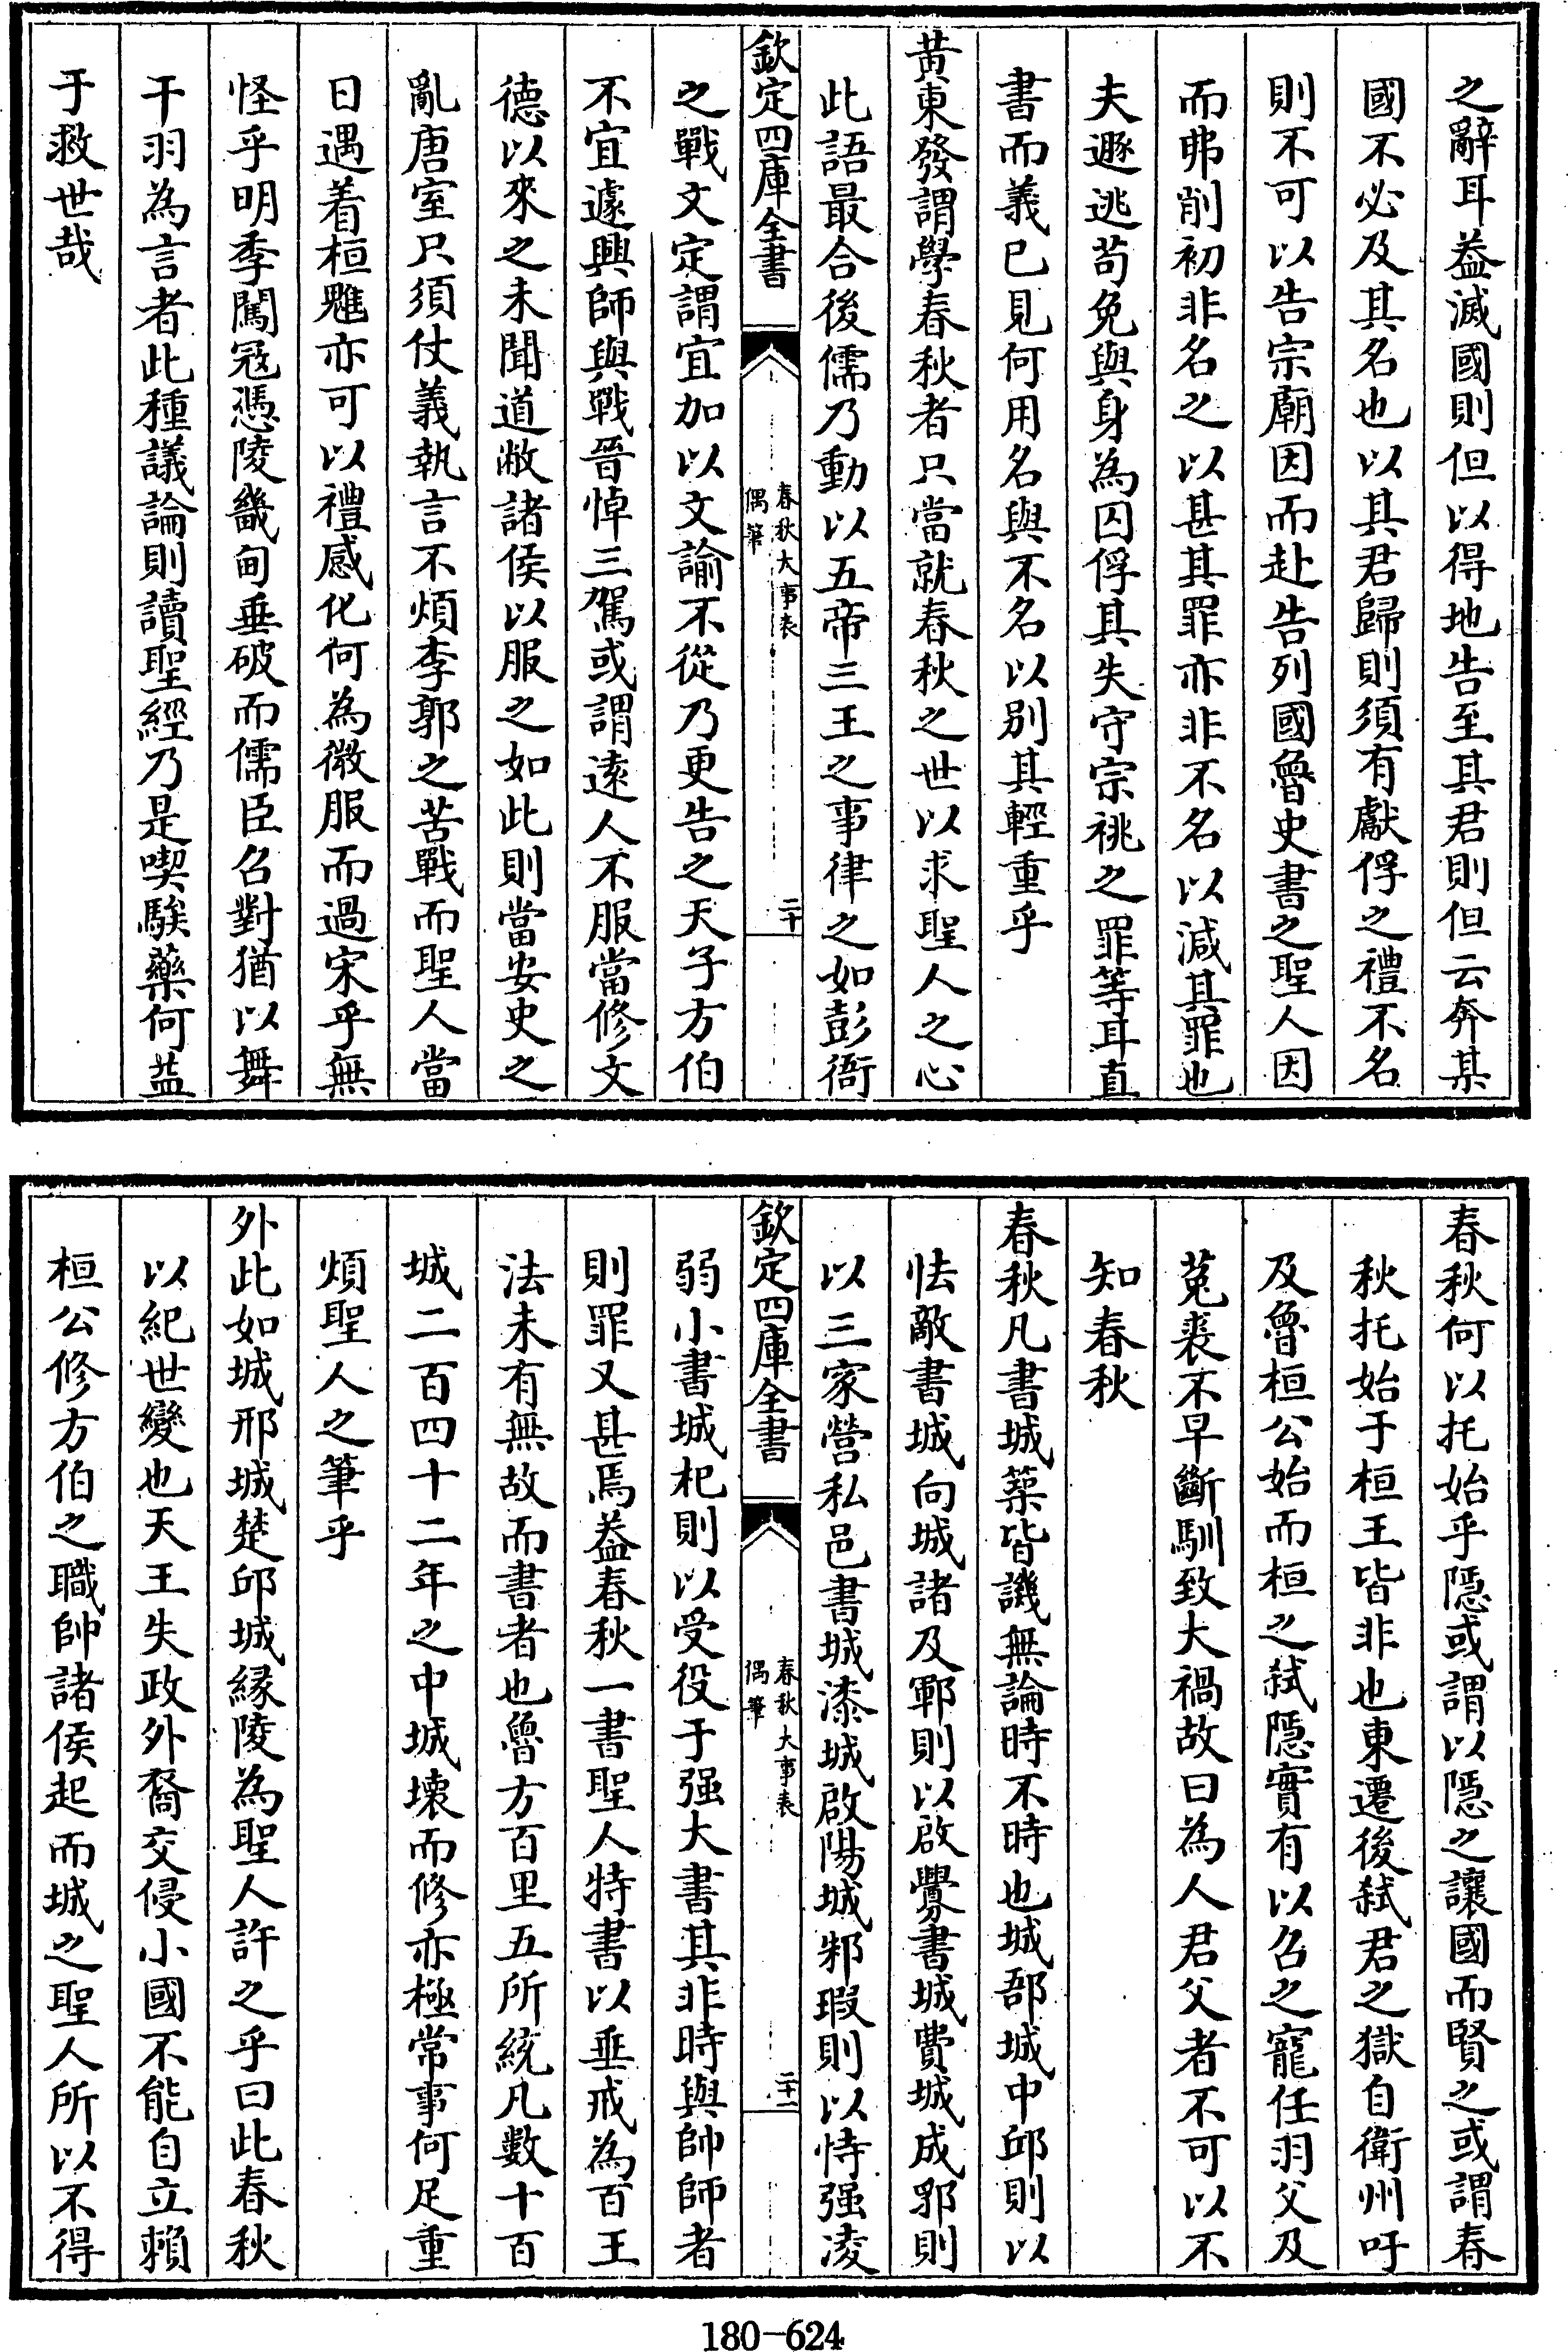 之辭耳葢滅國則但以得地告至其君則但云奔某
國不必及其名也以其君歸則須有獻俘之禮不名
則不可以告宗廟因而赴告列國魯史書之聖人因
而弗削初非名之以甚其罪亦非不名以減其罪也
夫遯逃苟免與身為囚俘其失守宗祧之罪等耳直
書而義已見何用名與不名以别其輕重乎
黄東發謂學春秋者只當就春秋之世以求聖人之心
此語最合後儒乃動以五帝三王之事律之如彭衙
欽定四庫全書
春秋大事表
偶筆
二十
之戰文定謂宜加以文諭不從乃更告之天子方伯
不宜遽興師與戰晉悼三駕或謂逺人不服當修文
德以來之未聞道敝諸侯以服之如此則當安史之
亂唐室只須仗義執言不煩李郭之苦戰而聖人當
日遇着桓魋亦可以禮感化何為微服而過宋乎無
怪乎明季闖冦憑陵畿甸垂破而儒臣召對猶以舞
干羽為言者此種議論則讀聖經乃是喫騃藥何益
于救世哉
春秋何以托始乎隱或謂以隱之讓國而賢之或謂春
秋托始于桓王皆非也東遷後弑君之獄自衛州吁
及魯桓公始而桓之弑隱實有以召之寵任羽父及
菟裘不早斷馴致大禍故曰為人君父者不可以不
知春秋
春秋凡書城築皆譏無論時不時也城郚城中邱則以
怯敵書城向城諸及鄆則以啟釁書城費城成郛則
以三家營私邑書城漆城啟陽城邾瑕則以恃强凌
欽定四庫全書
春秋大事表
偶筆
二十一
弱小書城杞則以受役于强大書其非時與帥師者
則罪又甚焉葢春秋一書聖人特書以垂戒為百王
法未有無故而書者也魯方百里五所統凡數十百
城二百四十二年之中城壊而修亦極常事何足重
煩聖人之筆乎
外此如城邢城楚邱城縁陵為聖人許之乎曰此春秋
以紀世變也天王失政外裔交侵小國不能自立賴
桓公修方伯之職帥諸侯起而城之聖人所以不得
180-624